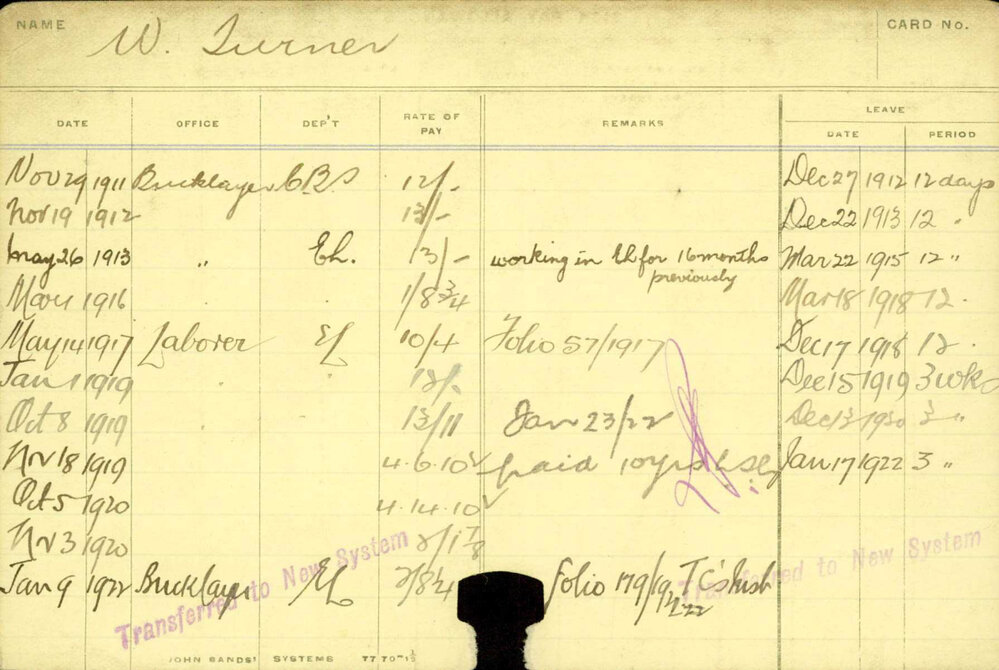 NAME W. Turner CARD No.
LEAVE
DATE OFFICE DEP'T RATE OF PAY REMARKS DATE PERIOD
Nov 29 1911 Bricklayer CBS 12/- Dec 27 1912 12 days
Nov 19 1912 13/- Dec 22 1913 12 "
May 26 1913 " Eh. 13/- working in Eh for 16 months previously Mar 22 1915 12 "
1916 1/8 3/4 Mar 18 1918 12 "
May 14 1917 Laborer EL 10/4 Folio 57/1917 Dec 17 1918 12 "
Jan 1 1919 " " 12/- Dec 15 1919 3 wks
Oct 8 1919 " 13/11 Jan 23/22 Dec 13 1920 3 "
Nov 18 1919 4.6.10 paid Jan 17 1922 3 "
Oct 5 1920 4.14.10
Nov 3 1920 2/1 7/8
Jan 9 1922 Bricklayer EL 2/8 1/4 Folio 179/19
Transferred to New System
Transferred to New System
JOHN SANDS' SYSTEMS